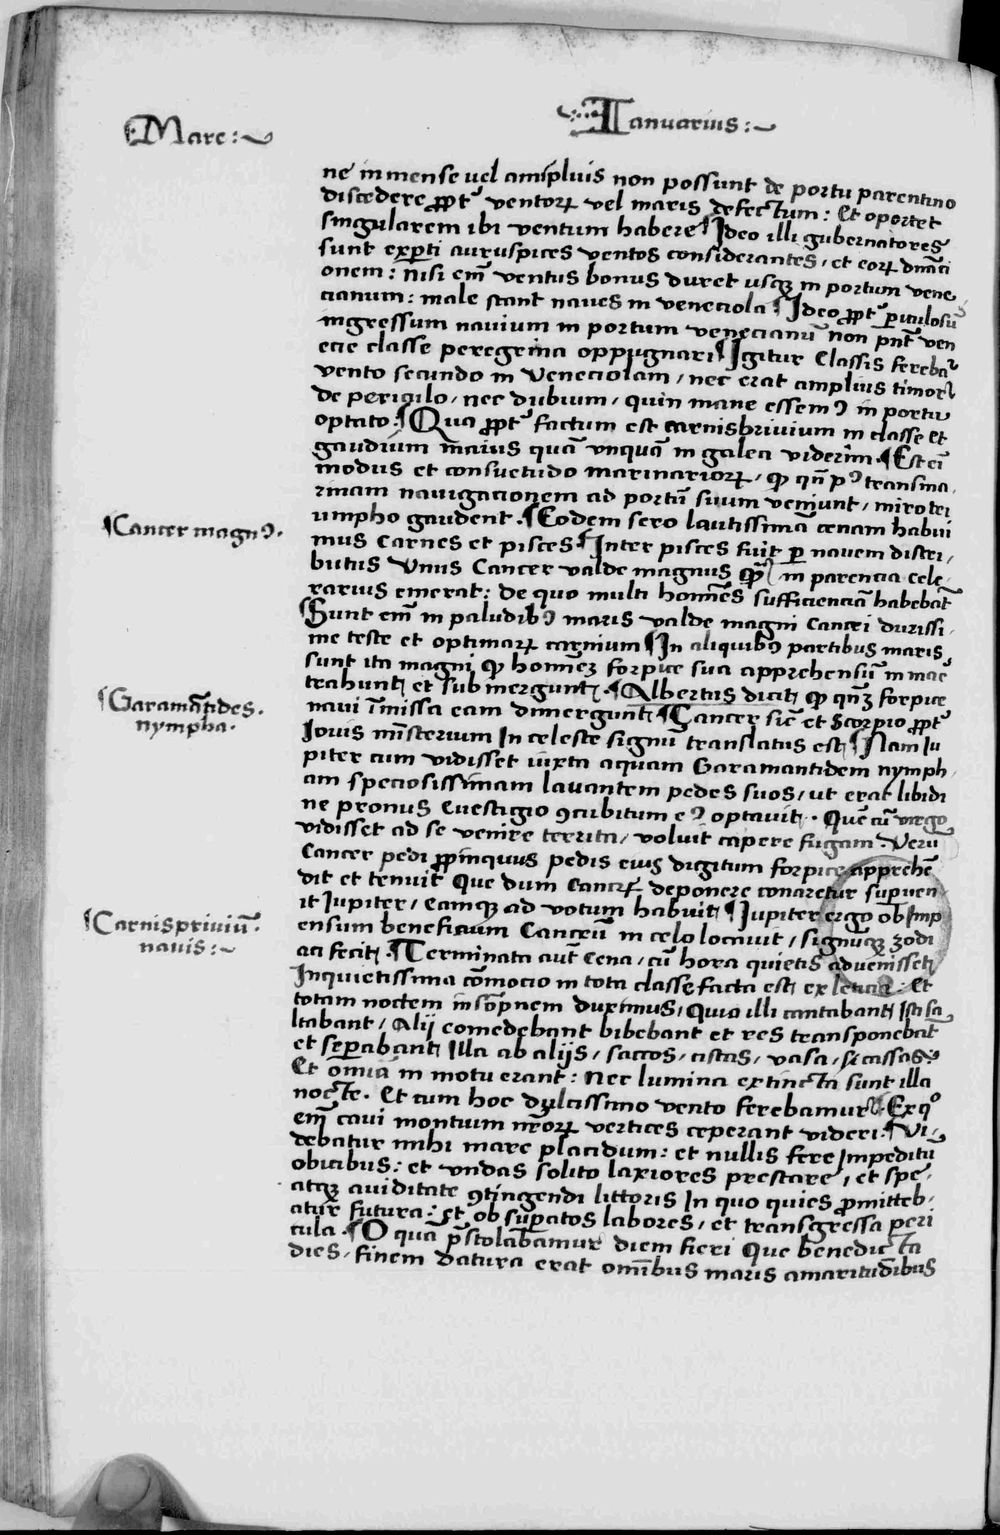 Mare:~
Ianuarius:~
ne in mense vel amplius non possunt de portu parentino
discedere ꝓpt᷒ ventoꝝ vel maris defectum: Et oportet
singularem ibi ventum habere ¶ Ideo illi gubernatores
sunt exꝑti auruspices ventos considerantes, et eoꝝ dn̄aci
onem: nisi em̄ ventus bonus duret usqꝫ in portum vene
cianum: male stant naues in veneciola ¶ Ideo ꝓpt᷒ ꝑiculosū
ingressum nauium in portum venecianū non pn̄t ven
ecie classe peregrina oppugnari ¶ Igitur Classis fereba᷒
vento secundo in Veneciolam, nec erat amplius timor
de periculo, nec dubium, quin mane essemꝰ in portu
optato: ¶ Qua ꝓpt᷒ factum est carnisbriuium in classe et
gaudium maius quā vnquā in galea viderim. ¶ Est eī
modus et consuetudo marinarioꝝ, ꝙ qn̄ pꝰ transma
rinam nauigacionem ad portū suum veniunt, miro tri
umpho gaudent. ¶ Eodem sero lautissimā cenam habui
mus Carnes et pisces ¶ Inter pisces fuit ꝑ nauem distri,
butus Vnus Cancer valde magnus in parencia cele
rarius emerat: de quo multi homīes sufficienciā habebāt
¶ Sunt em̄ in paludibꝰ maris valde magni Cancri durissi
me teste et optimaꝝ carnium ¶ In aliquibꝰ partibus maris
sunt ita magni ꝙ homīeꝫ forpice sua apprehensū in mae
trahunt et submergunt. ¶ Albertus dicit ꝙ qn̄ꝫ forpice
naui īmissa eam dimergunt ¶ Cancer sic̄ et Scorpio ꝓpt᷒
Iouis mīsterium In celeste signū translatus est ¶ Nam Iu
piter cum vidisset iuxta aquam Garamantidem nymph
am speciosissimam lauantem pedes suos, ut erat libidi
ne pronus E vestigio ꝯcubitum eꝰ optauit. Quē cū virgo
vidisset ad se venire territa, voluit capere fugam. Verū
Cancer pedi ꝓpinquus pedis eius digitum forpice apprehē
dit et tenuit Que dum Cancrū deponere conaretur suꝑuen
it Iupiter, Eamqꝫ ad votum habuit ¶ Iupiter ergo ob Imp
ensum beneficium Cancrū in celo locauit, signūqꝫ zodi
aci fecit. ¶ Terminata aut̄ Cena, cū hora quietis aduenisset
Inquietissima cōmocio in tota classe facta est ex leticia: Et
totam noctem insōpnem duximus, Quia illi cantabant Isti sa
ltabant, Alij comedebant bibebant et res transponebāt
et seꝑabant Illa ab alijs, saccos, cistas, vasa, si cassas.
Et omia in motu erant: Nec lumina extincta sunt illa
nocte. Et cum hoc dulcissimo vento ferebamur Ex qͦ
em̄ caui montium nr̄oꝝ vertices ceperant videri: ¶ Vi
debatur mihi mare placidum: et nullis fere Impeditū
obicibus: et vndas solito laxiores prestare, et spe
atqꝫ auiditate ꝯtingendi littoris In quo quies ꝓmitteb
atur futura: Et ob suꝑatos labores, et transgressa peri
cula. ¶ O quā p̄stolabamur diem fieri Que benedicta
dies, finem datura erat omībus maris amaritudībus
¶ Cancer magnꝰ.
¶ Garamātides.
nympha.
¶ Carnispriuiū.
nauis:~